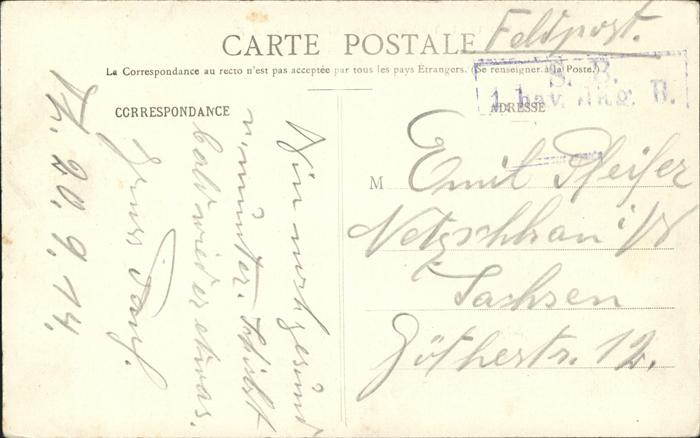 CARTE POSTALE
Feldpost.
La Correspondance au recto n'est pas acceptée par tous les pays Étrangers. (Se renseigner à la Poste.)
S. B.
1. bay.
CORRESPONDANCE
20. 9. 14.
Bin noch gesund
u. munter. Schickt
bald wieder etwas.
Gruss Paul.
ADRESSE
M Emil Pfeifer
Netzschkau i/V
Sachsen
Göthestr. 12.